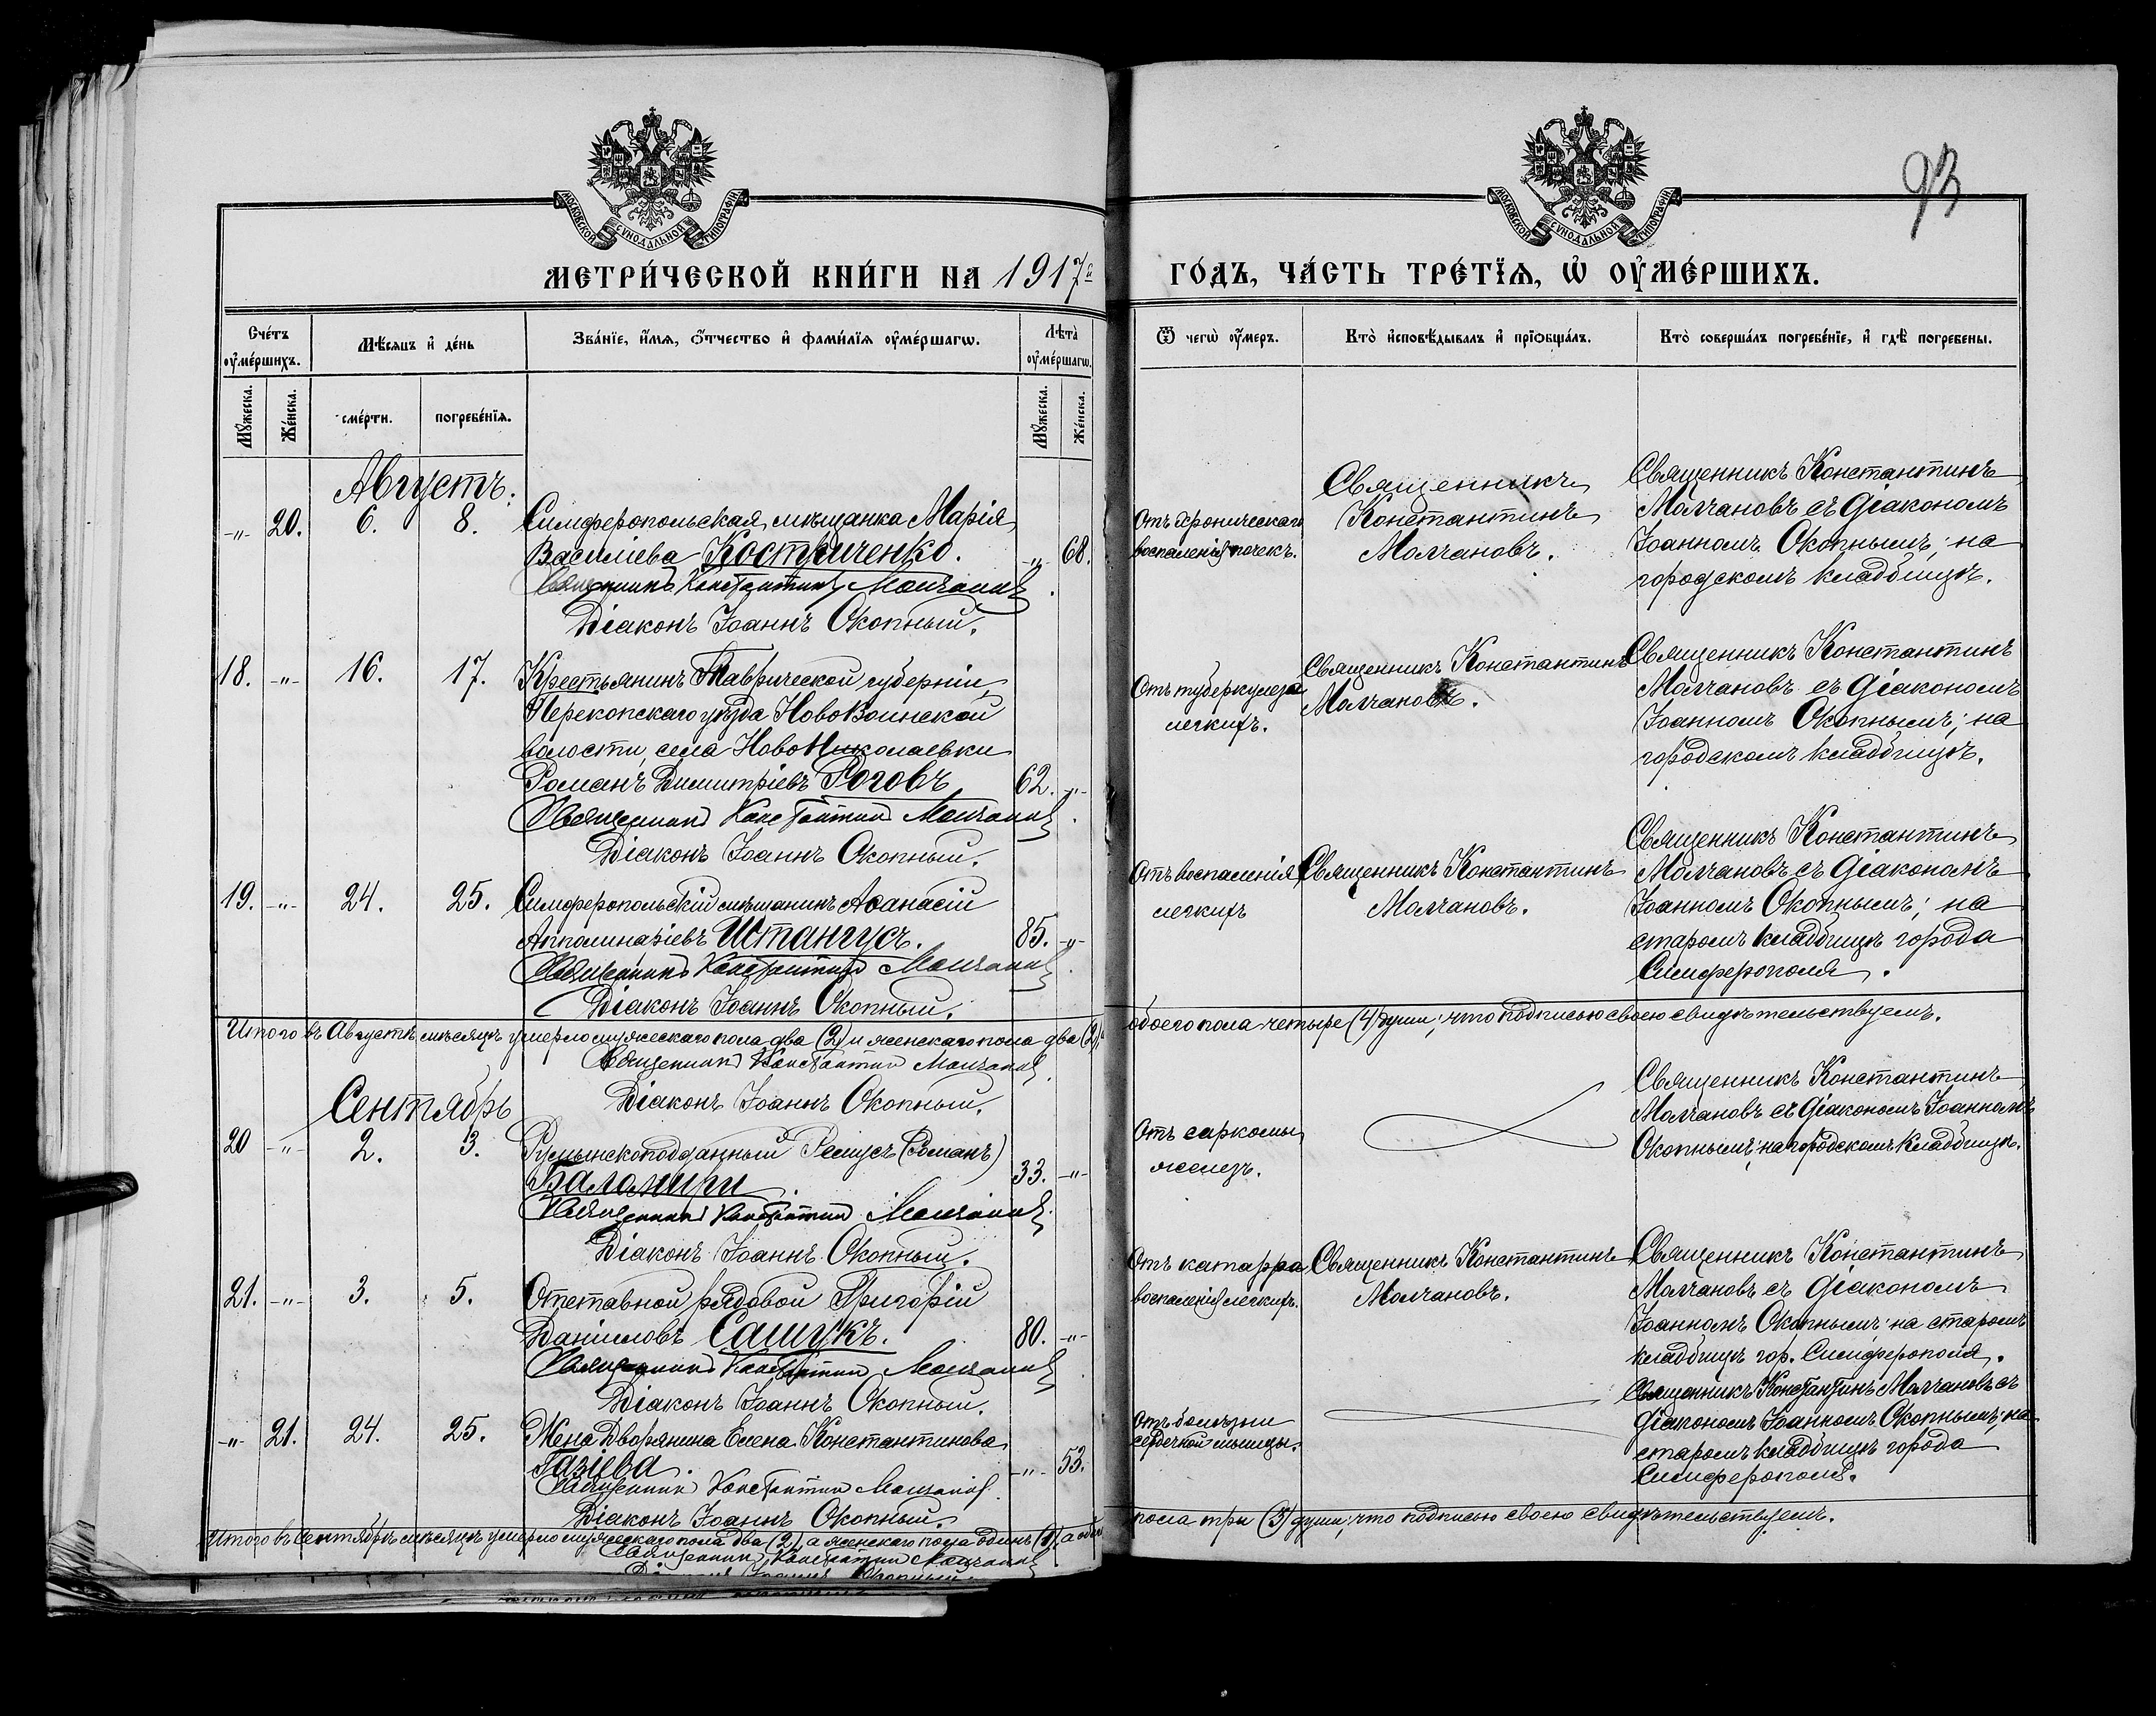 93
МОСКОВСКОЙ СѴНОДАЛЬНОЙ ТИПОГРАФІИ.
МОСКОВСКОЙ СѴНОДАЛЬНОЙ ТИПОГРАФІИ.
МЕТРИ́ЧЕСКОЙ КНИ́ГИ НА 1917й
ГО́ДЪ, ЧА́СТЬ ТРЕ́ТЇѦ, Ѡ҆ ОУ҆МЕ́РШИХЪ.
Сче́тъ оу҆ме́ршихъ.
Мѣ́сѧцъ и҆ де́нь
Зва́нїе, и҆́мѧ, ѻ҆́тчество и҆ фами́лїѧ оу҆ме́ршагѡ.
Лѣ́та оу҆ме́ршагѡ.
Ѿ чегѡ̀ оу҆́меръ.
Кто̀ и҆сповѣ́дывалъ и҆ прїѻбща́лъ.
Кто̀ соверша́лъ погребе́нїе, и҆ гдѣ̀ погребены.
Мꙋ́жеска.
Же́нска.
сме́рти.
погребе́нїѧ.
Мꙋ́жеска.
Же́нска.
Августъ.
-"- 20. 6. 8. Симферопольская мѣщанка Марія
Василіева Костюченко. -"- 68.
Священникъ Константинъ Молчановъ.
Діаконъ Іоаннъ Окопный.
Отъ хроническаго
воспаленія почекъ.
Священникъ
Константинъ
Молчановъ.
Священникъ Константинъ
Молчановъ съ діакономъ
Іоанномъ Окопнымъ; на
городскомъ кладбищѣ.
18. -"- 16. 17. Крестьянинъ Таврической губерніи,
Перекопскаго уѣзда НовоВоинской
волости, села НовоНиколаевки
Романъ Димитріевъ Роговъ 62. -"-
Священникъ Константинъ Молчановъ.
Діаконъ Іоаннъ Окопный.
Отъ туберкулеза
легкихъ.
Священникъ Константинъ
Молчановъ.
Священникъ Константинъ
Молчановъ съ діакономъ
Іоанномъ Окопнымъ; на
городскомъ кладбищѣ.
19. -"- 24. 25. Симферопольскій мѣщанинъ Аѳанасій
Апполинаріевъ Штангусъ. 85. -"-
Священникъ Константинъ Молчановъ.
Діаконъ Іоаннъ Окопный.
Отъ воспаленія
легкихъ
Священникъ Константинъ
Молчановъ.
Священникъ Константинъ
Молчановъ съ діакономъ
Іоанномъ Окопнымъ; на
старомъ кладбищѣ города
Симферополя.
Итого въ Августѣ мѣсяцѣ умерло мужескаго пола два (2) и женскаго пола два (2), обоего пола четыре (4) души; что подписью своею свидѣтельствуемъ.
Священникъ Константинъ Молчановъ.
Діаконъ Іоаннъ Окопный.
Сентябрь
20 -"- 2. 3. Румынскоподданный Ремусъ (Романъ)
Баломири. 33. -"-
Священникъ Константинъ Молчановъ.
Діаконъ Іоаннъ Окопный.
Отъ саркомы
железъ.
Священникъ Константинъ
Молчановъ съ діакономъ Іоанномъ
Окопнымъ; на городскомъ кладбищѣ.
21. -"- 3. 5. Отставной рядовой Григорій
Даніиловъ Сашукъ. 80. -"-
Священникъ Константинъ Молчановъ.
Діаконъ Іоаннъ Окопный.
Отъ катарра
воспаленія легкихъ.
Священникъ Константинъ
Молчановъ.
Священникъ Константинъ
Молчановъ съ діакономъ
Іоанномъ Окопнымъ; на старомъ
кладбищѣ гор. Симферополя.
-"- 21. 24. 25. Жена дворянина Елена Константинова
-"- 53.
Священникъ Константинъ Молчановъ
Діаконъ Іоаннъ Окопный.
Отъ болѣзни
сердечной мышцы.
Священникъ Константинъ Молчановъ съ
діакономъ Іоанномъ Окопнымъ; на
старомъ кладбищѣ города
Симферополя.
Итого въ Сентябрѣ мѣсяцѣ умерло мужескаго пола два (2), а женскаго пола одинъ (1), а обоего пола три (3) души; что подписью своею свидѣтельствуемъ.
Священникъ Константинъ Молчановъ
Діаконъ Іоаннъ Окопный.